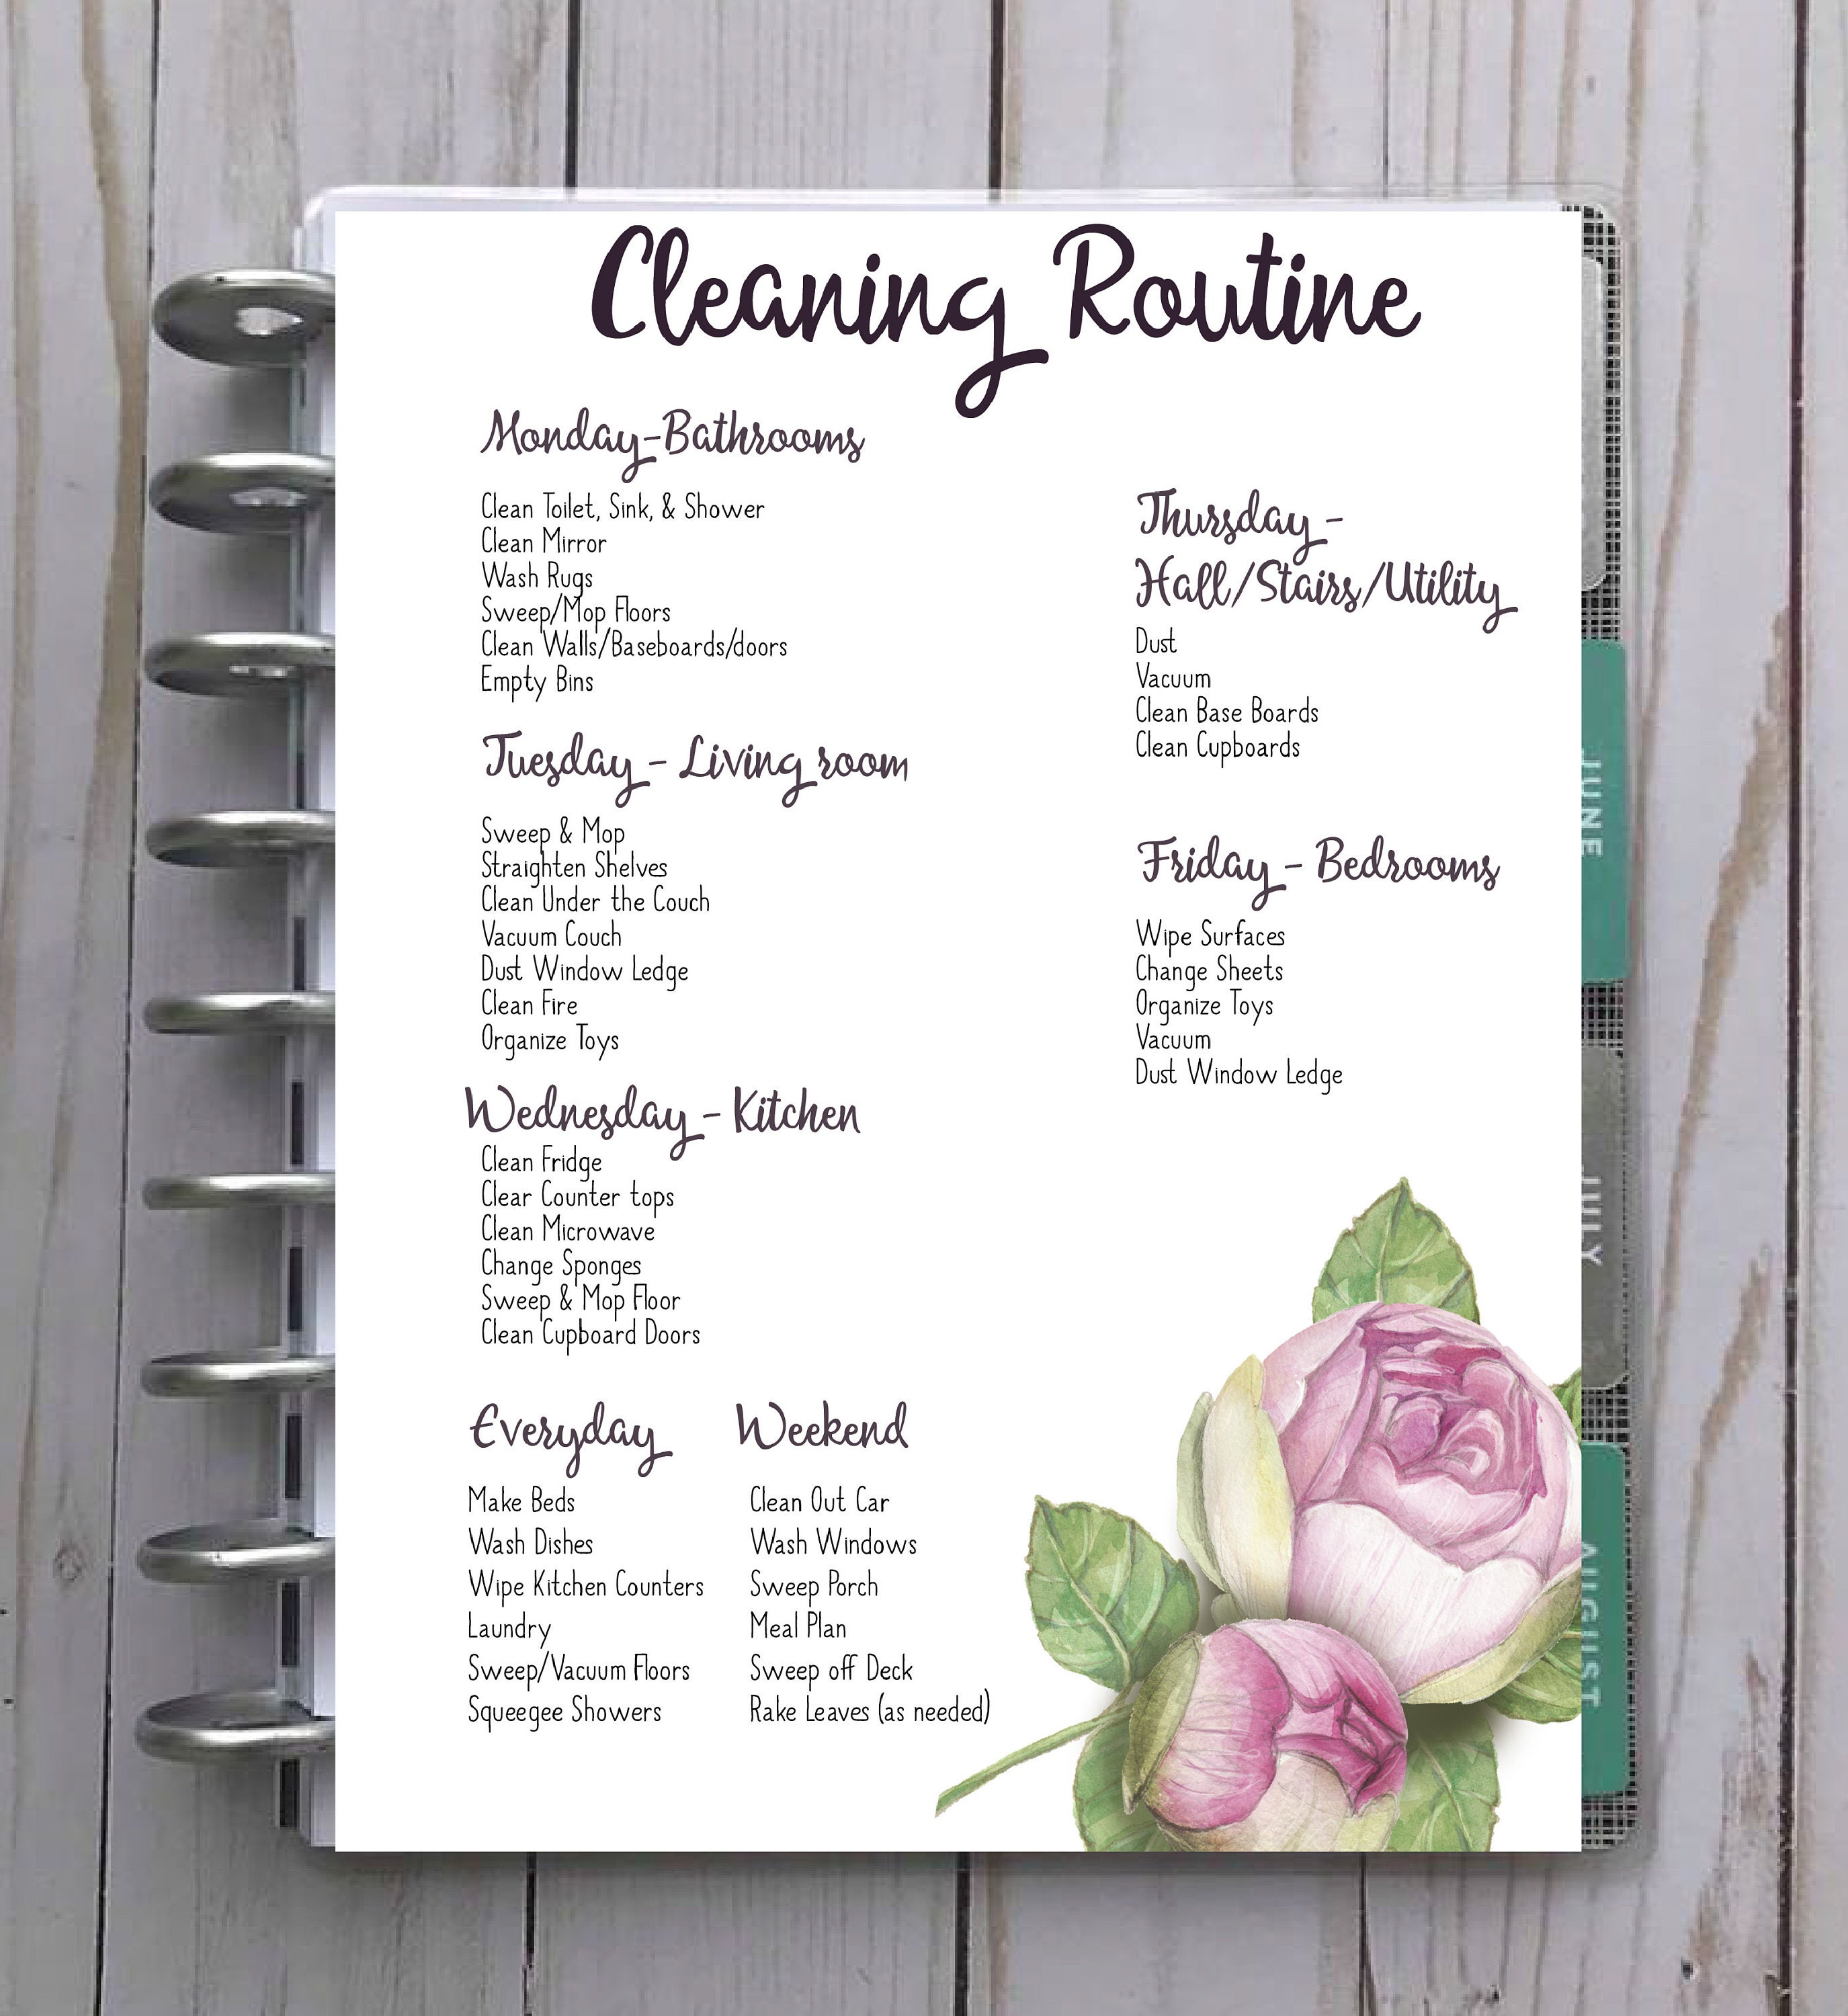 Cleaning Routine
Monday-Bathrooms
Clean Toilet, Sink, & Shower
Clean Mirror
Wash Rugs
Sweep/Mop Floors
Clean Walls/Baseboards/doors
Empty Bins
Tuesday - Living room
Sweep & Mop
Straighten Shelves
Clean Under the Couch
Vacuum Couch
Dust Window Ledge
Clean Fire
Organize Toys
Wednesday - Kitchen
Clean Fridge
Clear Counter tops
Clean Microwave
Change Sponges
Sweep & Mop Floor
Clean Cupboard Doors
Everyday
Make Beds
Wash Dishes
Wipe Kitchen Counters
Laundry
Sweep/Vacuum Floors
Squeegee Showers
Weekend
Clean Out Car
Wash Windows
Sweep Porch
Meal Plan
Sweep off Deck
Rake Leaves (as needed)
Thursday -
Hall/Stairs/Utility
Dust
Vacuum
Clean Base Boards
Clean Cupboards
Friday - Bedrooms
Wipe Surfaces
Change Sheets
Organize Toys
Vacuum
Dust Window Ledge
JUNE
JULY
AUGUST